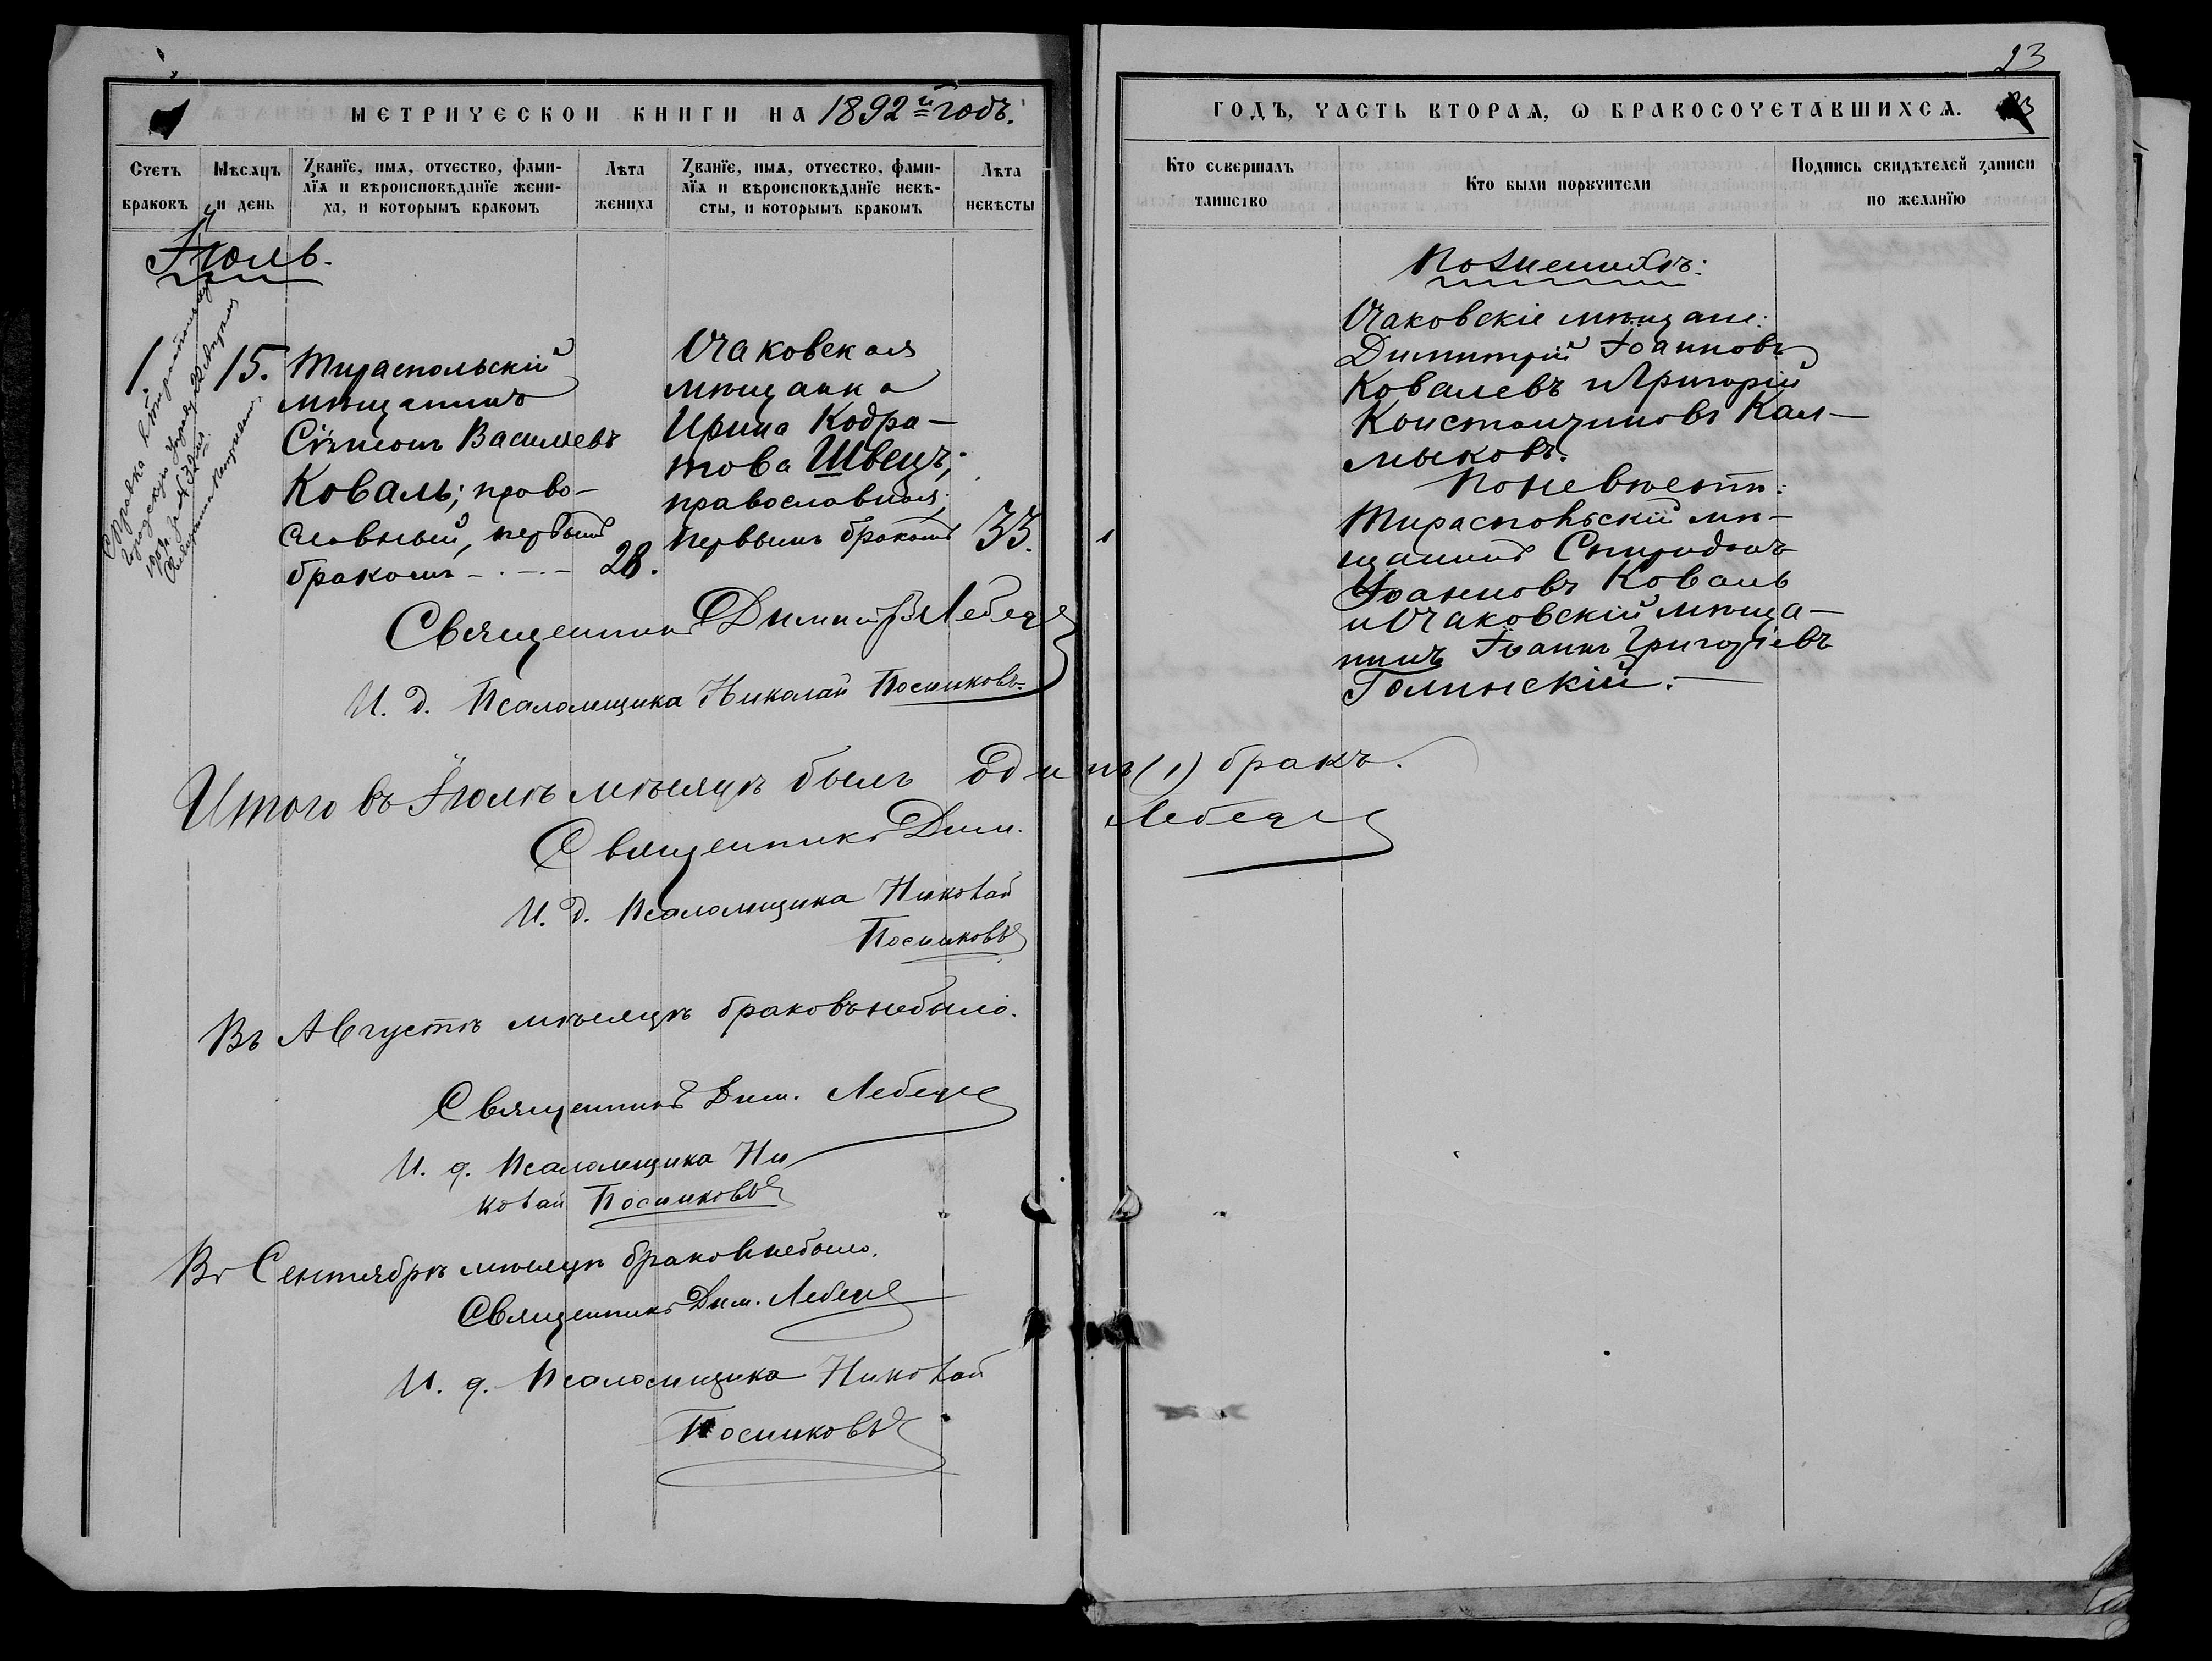 23
МЕТРИЧЕСКОИ КНИГИ НА 1892й годъ.
ГОДЪ, ЧАСТЬ ВТОРАѦ, Ѡ БРАКОСОЧЕТАВШИХСѦ.
Счетъ браковъ
Мѣсѧцъ и день
Званїе, имѧ, отчество, фами-
лїѧ и вѣроисповѣданїе жени-
ха, и которымъ бракомъ
Лѣта жениха
Званїе, имѧ, отчество, фами-
лїѧ и вѣроисповѣданїе невѣ-
сты, и которымъ бракомъ
Лѣта невѣсты
Кто совершалъ таинство
Кто были порꙋчители
Подпись свидѣтелей записи
по желанїю
Іюль.
1
15.
Тираспольскій
мѣщанинъ
Сѵмеонъ Васильевъ
Коваль; право-
славный, первымъ
бракомъ
28.
Очаковская
мѣщанка
Ирина Кодра-
това Швецъ;
православная,
первымъ бракомъ
33.
По женихѣ:
Очаковскіе мѣщане:
Димитрій Іоанновъ
Ковалевъ и Григорій
Константиновъ Кал-
мыковъ.
По невѣстѣ:
Тираспольскій мѣ-
щанинъ Спиридонъ
Іоанновъ Коваль
и Очаковскій мѣща-
нинъ Іоаннъ Григоріевъ
Голинскій.
Священникъ Димитрій Лебедевъ
И. д. Псаломщика Николай Посниковъ.
Итого въ Іюлѣ мѣсяцѣ былъ одинъ (1) бракъ.
Священникъ Дим. Лебедевъ
И. д. Псаломщика Николай
Посниковъ
Въ Августѣ мѣсяцѣ браковъ небыло.
Священникъ Дим. Лебедевъ
И. д. Псаломщика Ни
колай Посниковъ
Въ Сентябрѣ мѣсяцѣ браковъ небыло.
Священникъ Дим. Лебедевъ
И. д. Псаломщика Николай
Посниковъ